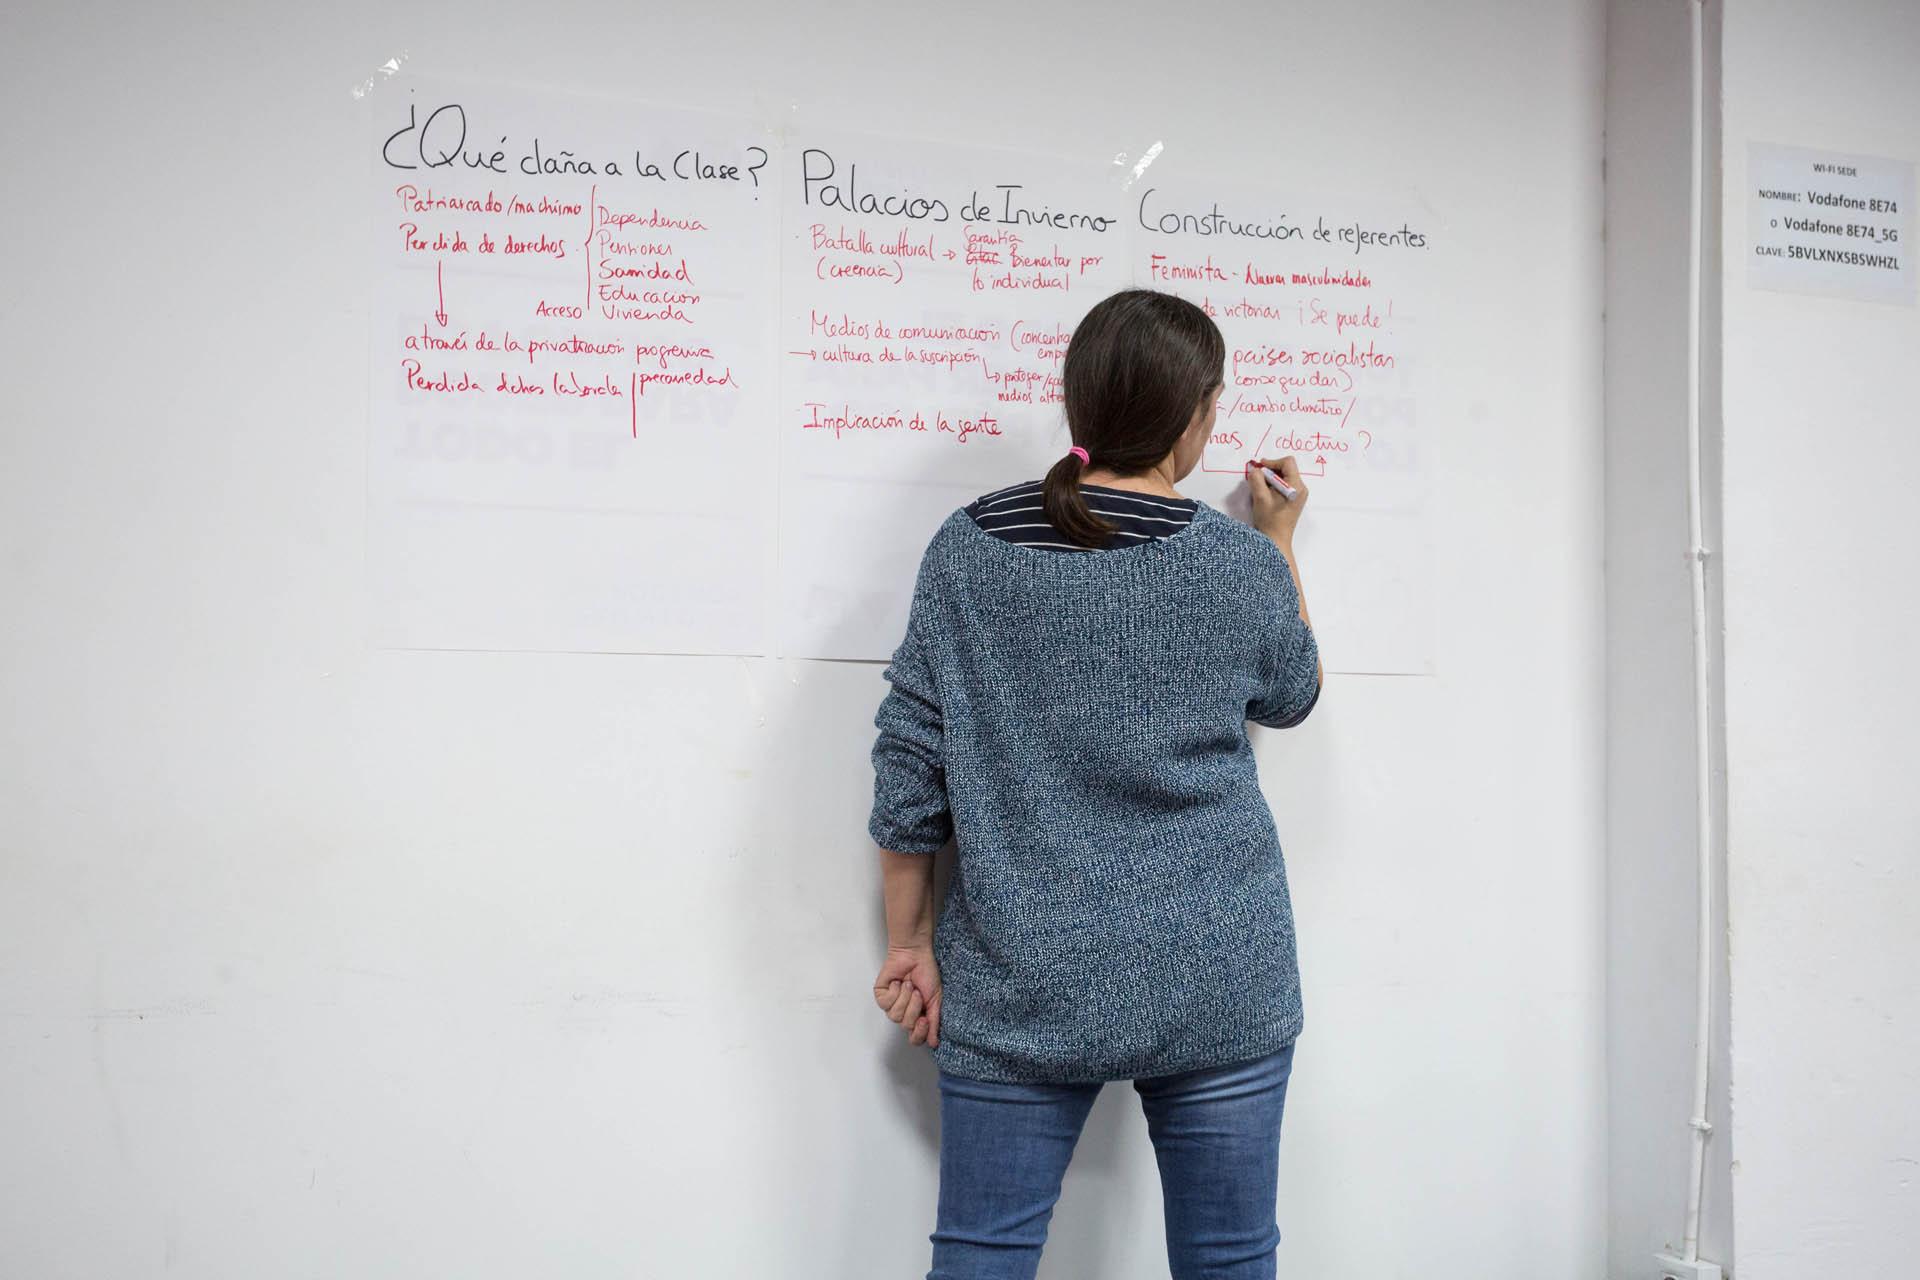 ¿Qué daña a la Clase?
Patriarcado/machismo
Perdida de derechos
Dependencia
Pensiones
Sanidad
Educación
Acceso Vivienda
através de la privatización progresiva
Perdida dchos laborales precariedad
Palacios de Invierno
· Batalla cultural → Garantía
Bienestar por
(creencia) lo individual
· Medios de comunicación (concentra
→ cultura de la suscripción
↳ proteger/
medios alte
· Implicación de la gente
Construcción de referentes.
Feminista - Nuevas masculinidades
de victorias ¡Se puede!
paises socialistas
conseguidas)
/cambio climático/
/colectivo?
WI-FI SEDE
NOMBRE: Vodafone 8E74
o Vodafone 8E74_5G
CLAVE: 5BVLXNXSBSWHZL